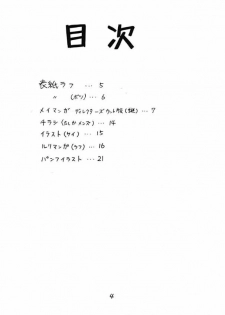 目次
表紙ラフ … 5
〃 (ボツ) … 6
メイマンガ ディレクターズカット版 (続) … 7
チラシ (たしかメンズ) … 14
イラスト (サイ) … 15
ルリマンガ (ラフ) … 16
パンフイラスト … 21
4